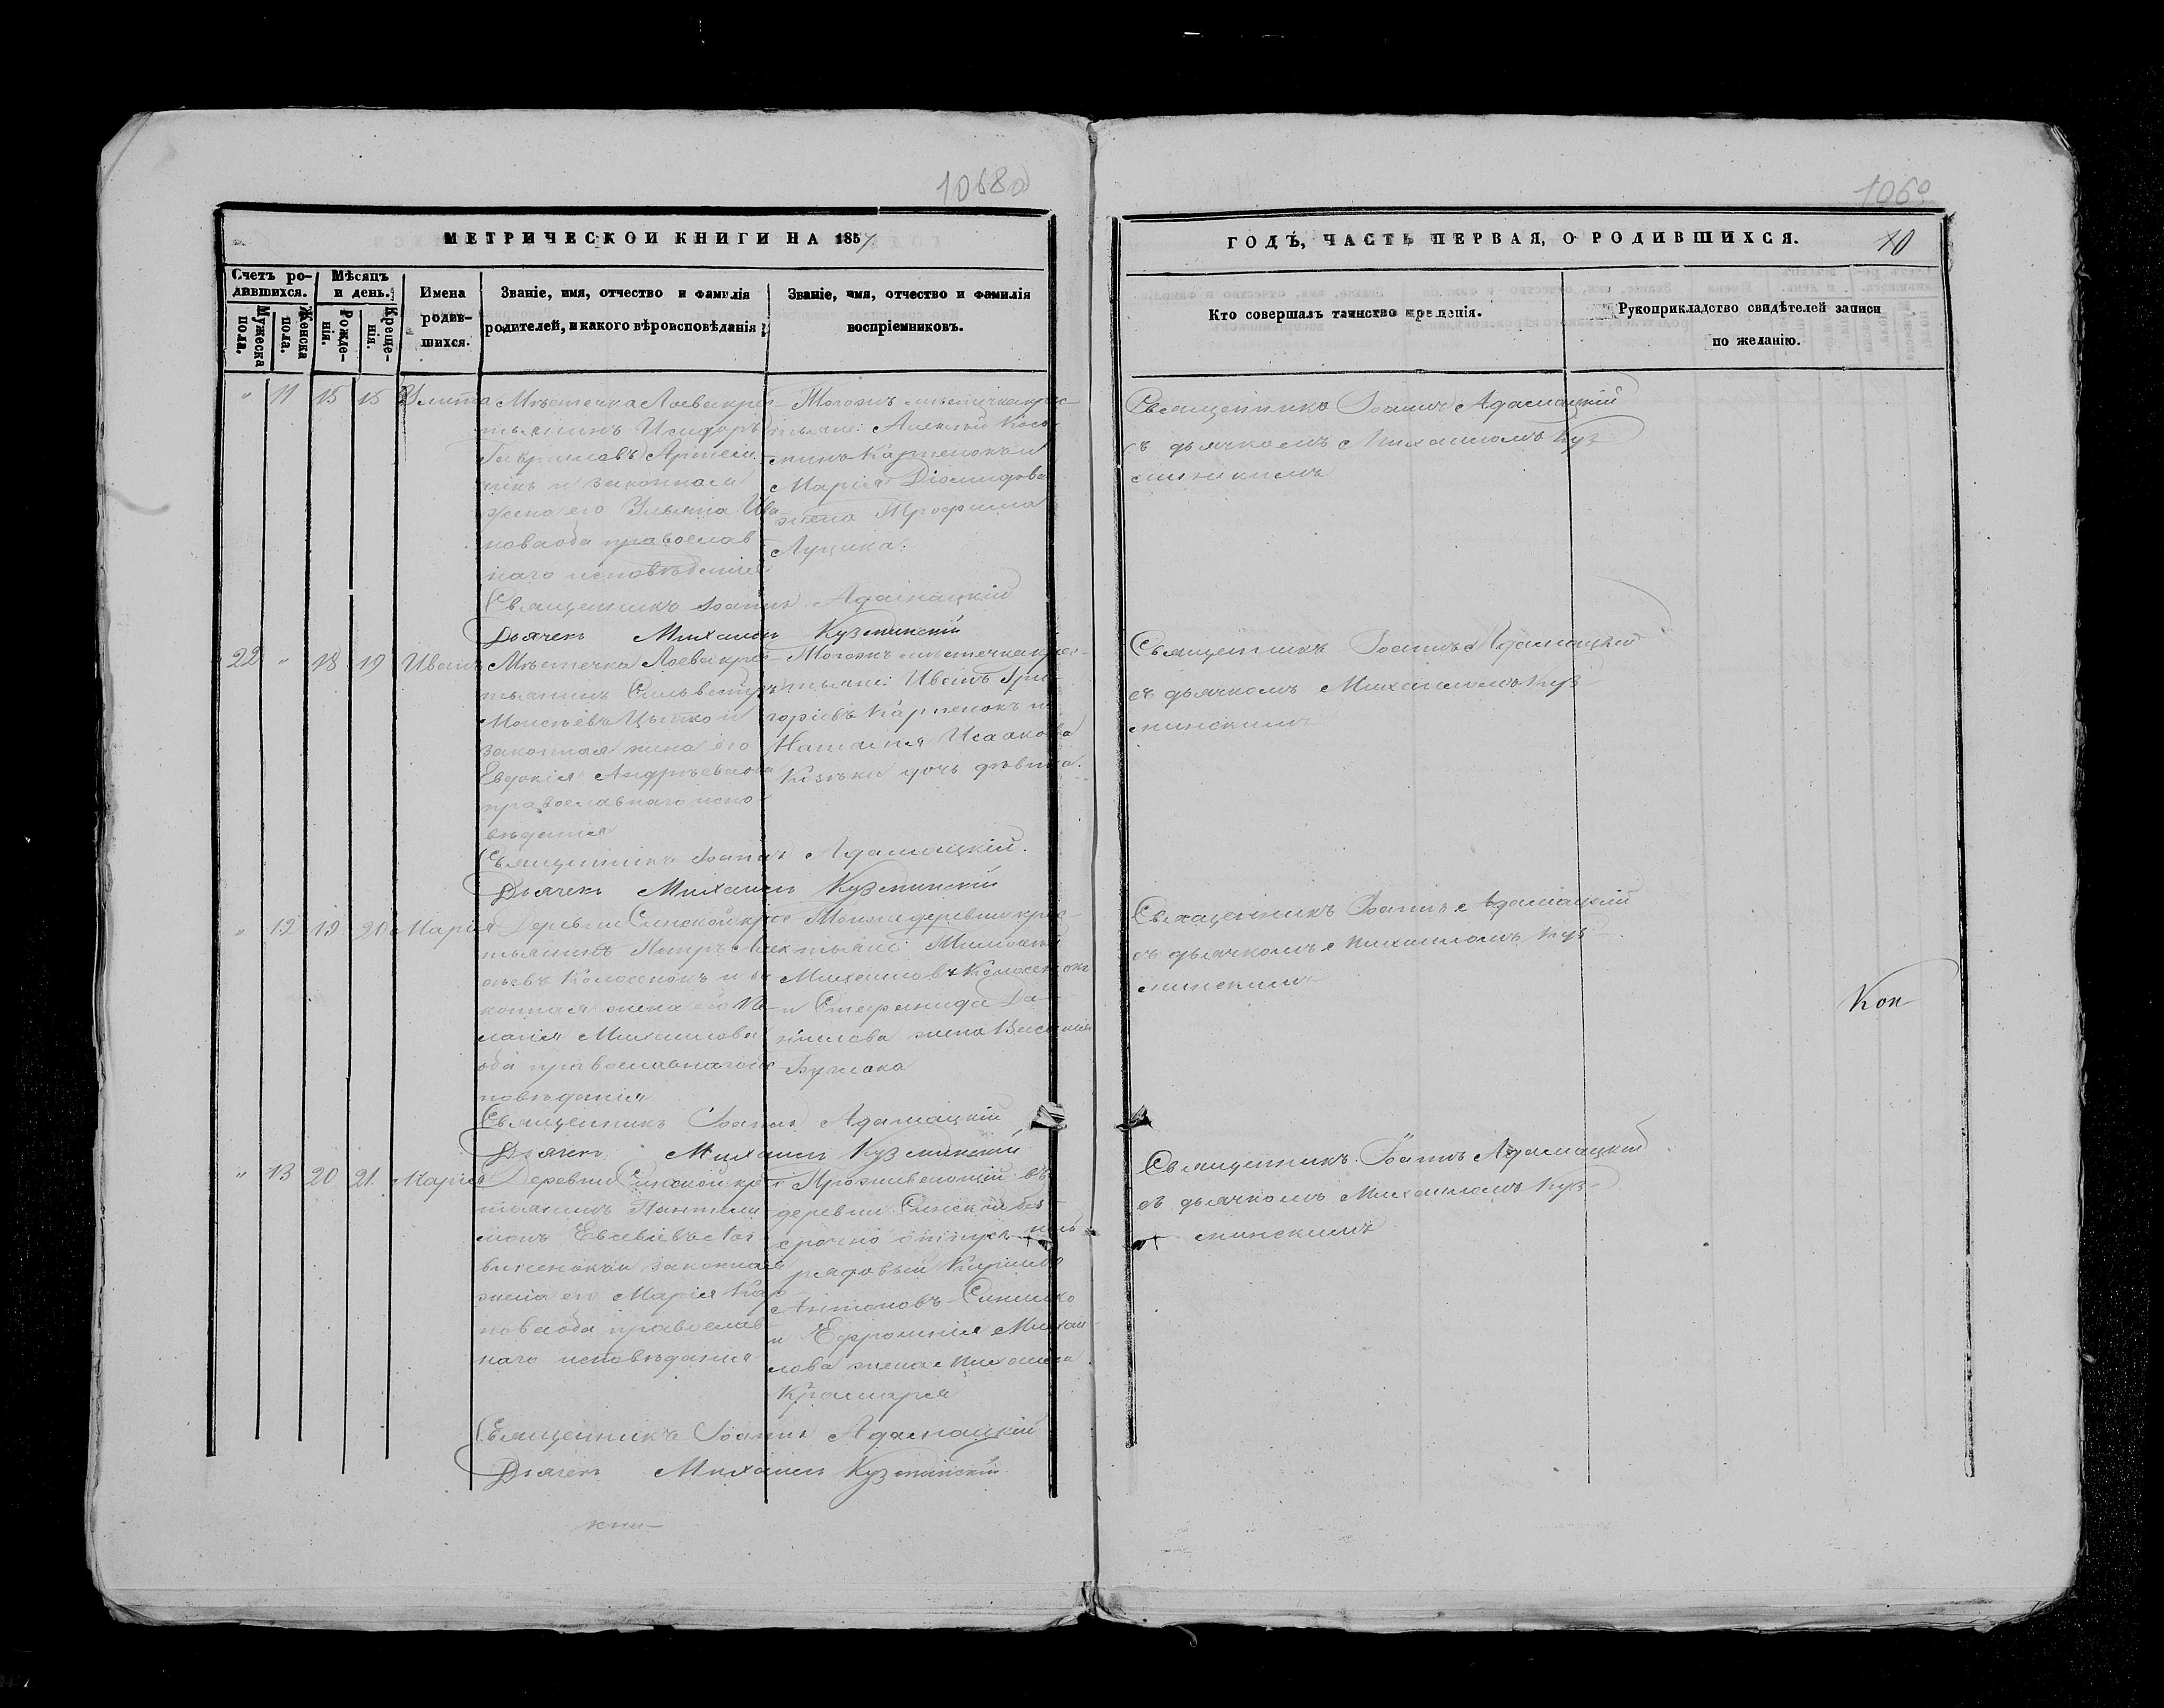 1068об
МЕТРИЧЕСКОЙ КНИГИ НА 1857
Счетъ ро-
дившихся.
Мѣсяцъ
и день.
Мужеска
пола.
Женска
пола.
Рожде-
нія.
Креще-
нія.
Имена
родив-
шихся.
Званіе, имя, отчество и фамилія
родителей, и какого вѣроисповѣданія
Званіе, имя, отчество и фамилія
воспріемниковъ.
" 11 15 15 Улита
Мѣстечка Лоева крес-
тьянинъ Исидоръ
Гавриловъ
и законная
жена его Ульяна Ива
нова оба православ
наго исповѣданія
Тогожъ мѣстечка крес-
тьяне: Алексѣй Кось
минъ Карпенокъ и
Марія Діомидова
жена Трофима
Луцика.
Священникъ Іоаннъ Адамацкій
Дьячекъ Михаилъ Кузминскій
22 " 18 19 Иванъ
Мѣстечка Лоева крес-
тьянинъ Сильвестръ
Моисеевъ Цытко и
законная жена его
Евдокія Андреева оба
православнаго испо
вѣданія
Тогожъ мѣстечка крес-
тьяне: Иванъ Гри-
горіевъ Карпенокъ и
Наталія Исаакова
дочь дѣвица.
Священникъ Іоаннъ Адамацкій.
Дьячекъ Михаилъ Кузминскій
" 12 19 20 Марія
Деревни Синской крес
тьянинъ Петръ
и за
конная жена его Пе-
лагія Михаилова
оба православнаго ис
повѣданія
Тойже деревни крес-
тьяне:
Михаиловъ
и Стефанида Да-
ніилова жена Василія
Священникъ Іоаннъ Адамацкій
Дьячекъ Михаилъ Кузминскій
" 13 20 21 Марія
Деревни Синской крес
тьянинъ Пантелеи
монъ Евсевіевъ
и законная
жена его Марія Кар
нова оба православ
наго исповѣданія
Проживающій въ
деревни Синской без
срочно отпуск ной
рядовый Кирилъ
Антоновъ
и Ефросинія Михаи
лова жена Михаила
Крамаря
Священникъ Іоаннъ Адамацкій
Дьячекъ Михаилъ Кузминскій
1069
ГОДЪ, ЧАСТЬ ПЕРВАЯ, О РОДИВШИХСЯ.
10
Кто совершалъ таинство крещенія.
Рукоприкладство свидѣтелей записи
по желанію.
Священникъ Іоаннъ Адамацкій
съ дьячкомъ Михаиломъ Куз
минскимъ
Священникъ Іоаннъ Адамацкій
съ дьячкомъ Михаиломъ Куз
минскимъ
Священникъ Іоаннъ Адамацкій
съ дьячкомъ Михаиломъ Куз
минскимъ
Священникъ Іоаннъ Адамацкій
съ дьячкомъ Михаиломъ Куз
минскимъ